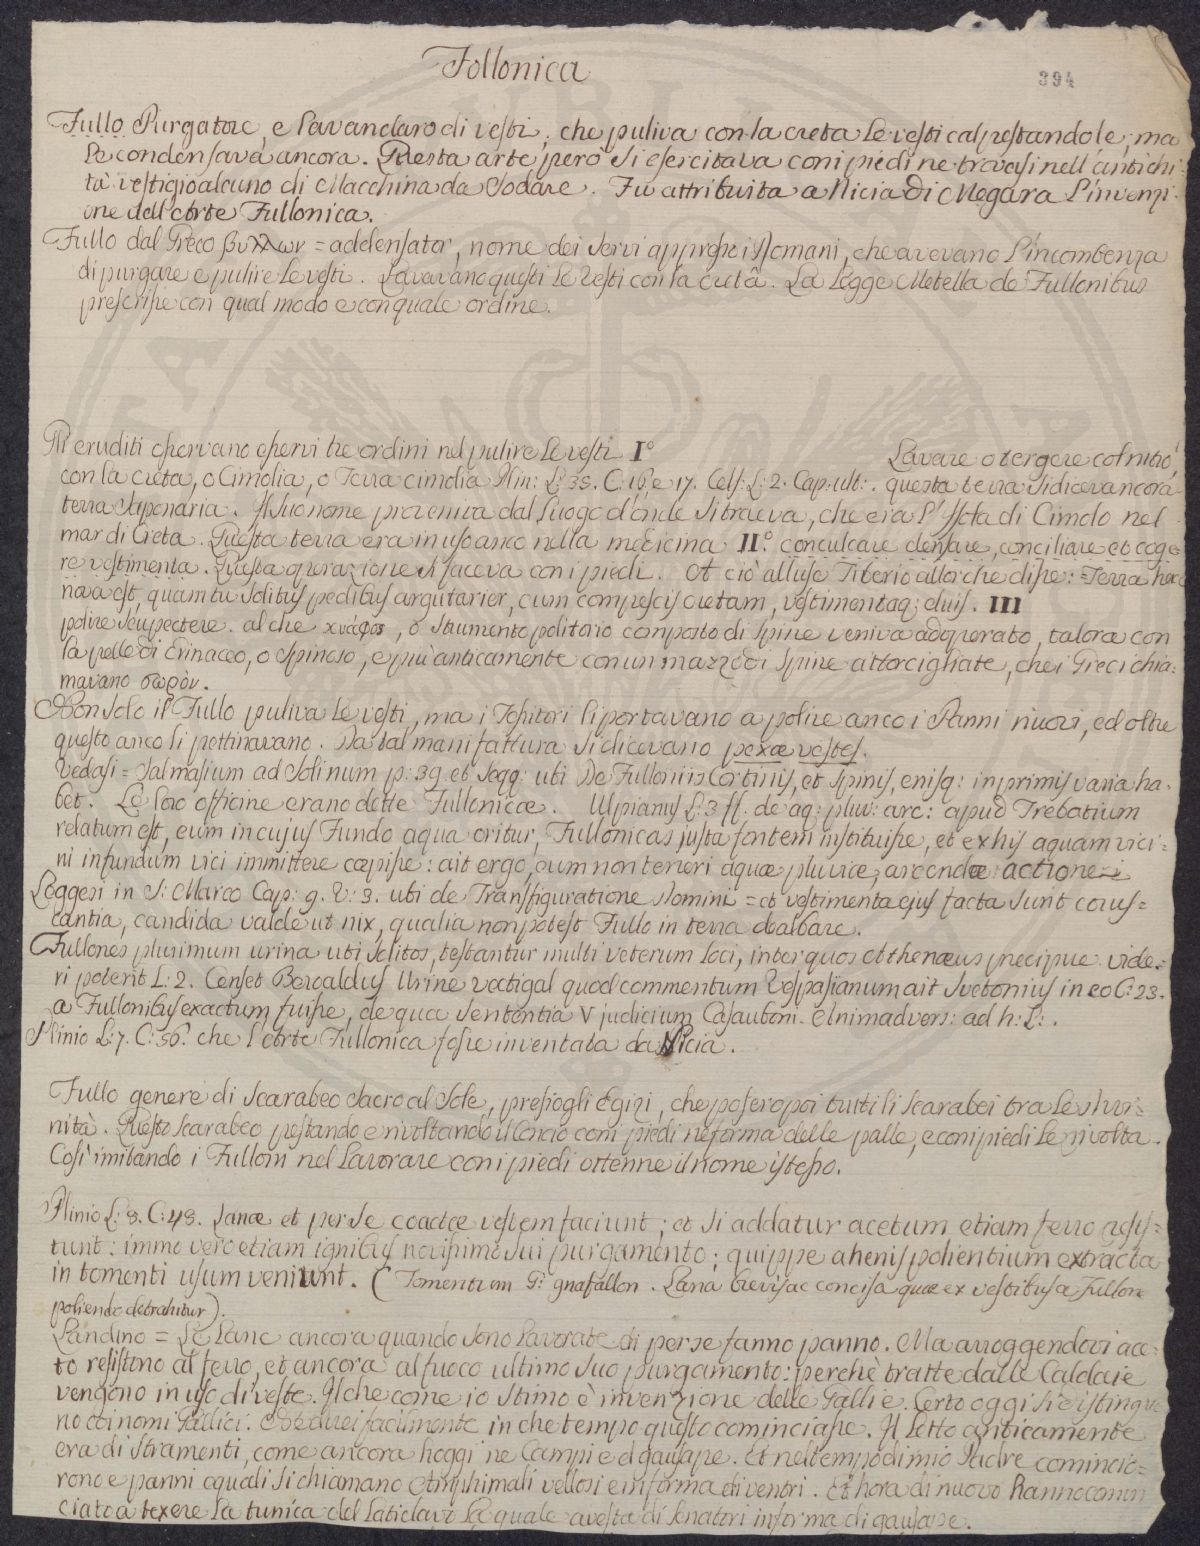 Follonica
394
Fullo Purgatore, e lavandaro di vesti, che puliva con la creta le vesti calpestandole, ma
le condensava ancora. Questa arte però si esercitava con i piedi ne trovasi nell'antichi=
tà vestigio alcuno di Macchina da Sodare. Fu attribuita a Nicia di Megara l'invenzi=
one dell'Arte Fullonica.
Fullo dal Greco βυλλων = addensator, nome dei servi appresso i Romani, che avevano l'incombenza
di purgare e pulire le vesti. Lavavano questi le vesti con la creta. La Legge Metella de Fullonibus
prescrisse con qual modo e con quale ordine.
Gli eruditi osservano esservi tre ordini nel pulire le vesti I° Lavare o tergere col nitro,
con la creta, o Cimolia, o Terra cimolia Plin: L: 35. C: 16. e 17. Cels: L: 2. Cap. ult:. questa terra si diceva ancora
terra saponaria. Il suo nome proveniva dal luogo d'onde si traeva, che era l'Isola di Cimolo nel
mar di Creta. Questa terra era in uso anco nella medicina II° conculcare densare, conciliare et coge=
re vestimenta. Questa operazione si faceva con i piedi. Et ciò alluse Tiberio allorche disse: = Terra haec
nova est, quam tu solitus pedibus argutarier, cum compescis cretam, vestimentaq; eluis. III
polire seu pectere. al che κνάφος, o strumento politorio composto di spine veniva adoperato, talora con
la pelle di Erinaceo, o spinoso, e più anticamente con un mazzo di spine attorcigliate, che i Greci chia=
mavano σωρὸν.
Non solo il Fullo puliva le vesti, ma i Tessitori li portavano a polire anco i Panni nuovi, ed oltre
questo anco li pettinavano. Da tal manifattura si dicevano pexæ vestes.
Vedasi = Salmasium ad Solinum p: 39 et seqq: uti De Fulloniis Cortinis, et spinis, eNisq: in primis varia ha=
bet. Le loro officine erano dette Fullonicæ. Ulpianus L: 3 ff. de aq: pluv: arc: apud Trebatium
relatum est, eum in cujus Fundo aqua oritur, Fullonicas justa fontem instituisse, et ex his aquam vici=
ni in fundum vici immittere cæpisse: ait ergo, eum non teneri aquæ pluviæ, arcendæ actione
Leggesi in S: Marco Cap: 9. V: 3. uti de Transfiguratione Domini = et vestimenta ejus facta sunt corus=
cantia, candida valde ut nix, qualia non potest Fullo in terra dealbare.
Fullones plurimum urina uti solitos, testantur multi veterum loci, inter quos Athenæus precipue. vide=
ri poterit L: 2. Censet Beroaldus Urinæ vectigal quod commentum Vespasianum ait Svetonius in eo C: 23.
a Fullonibus exactum fuisse, de qua sententia V judicium Casauboni. Animadvers: ad h: L:.
Plinio L: 7. C: 56. che l'Arte Fullonica fosse inventata da Nicia.
Fullo genere di Scarabeo Sacro al Sole, presso gli Egizi, che posero poi tutti li scarabei tra le Divi=
nità. Questo scarabeo pestando e rivoltando il Concio con i piedi ne forma delle palle, e con i piedi le rivolta.
Così imitando i Fulloni nel lavorare con i piedi ottenne il nome istesso.
Plinio L: 8. C: 48. Lanæ et per se coactæ vestem faciunt; et si addatur acetum etiam ferro resis=
tunt: immo vero etiam ignibus novissimo sui purgamento; quippe ahenis polientium extracta
in tomenti usum veniunt. (Tomentum G: gnafallon. Lana brevis ac concisa quæ ex vestibus a Fullone
poliendo detrahitur).
Landino = Le Lane ancora quando sono lavorate di per se fanno panno. Ma arroggendovi ace=
to resistono al ferro, et ancora al fuoco ultimo suo purgamento: perchè tratte dalle Caldaie
vengono in uso di veste. Il che come io stimo è invenzione delle Gallie. Certo oggi si distinguo
no co i nomi Gallici. facilmente in che tempo questo cominciasse. Il letto anticamente
era di stramenti, come ancora hoggi ne Campi e d gausape. Et nel tempo di mio Padre comincio=
rono e panni e quali si chiamano Amphimali vellosi e in forma di ventri. Et hora di nuovo hanno comin
ciato a texere la tunica del laticlavo la quale a vesta di Senatori in forma di gausape.